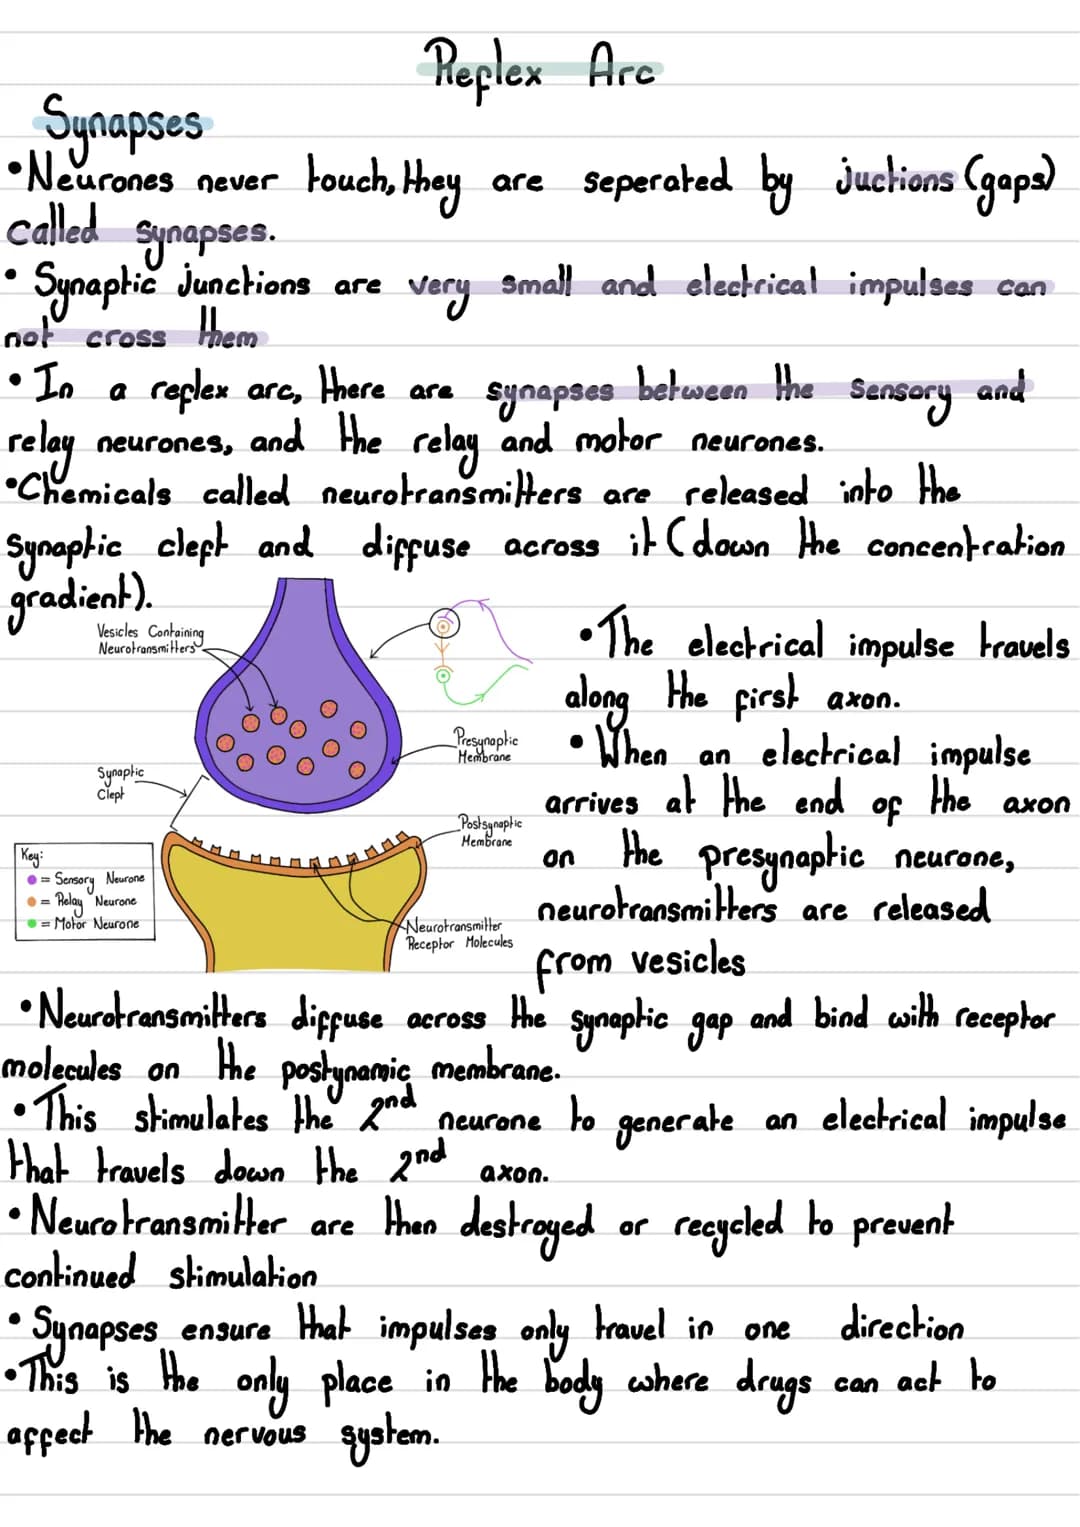 Reflex Arc
Synapses
•Neurones never touch, they are seperated by juctions (gaps)
called synapses.
• Synaptic junctions are very small and electrical impulses can
not cross them
• In a reflex arc, there are synapses between the sensory and
relay neurones, and the relay and motor neurones.
•Chemicals called neurotransmitters are released into the
synaptic cleft and diffuse across it (down the concentration
gradient).
Vesicles Containing
Neurotransmitters
Presynaptic
Membrane
Synaptic
Cleft
Postsynaptic
Membrane
Key:
= Sensory Neurone
= Relay Neurone
= Motor Neurone
Neurotransmitter
Receptor Molecules
•The electrical impulse travels
along the first axon.
• When an electrical impulse
arrives at the end of the axon
on the presynaptic neurone,
neurotransmitters are released
from vesicles
•Neurotransmitters diffuse across the synaptic gap and bind with receptor
molecules on the postynamic membrane.
•This stimulates the 2nd neurone to generate an electrical impulse
that travels down the 2nd axon.
•Neurotransmitter are then destroyed or recycled to prevent
continued stimulation
• Synapses ensure that impulses only travel in one direction
•This is the only place in the body where drugs can act to
affect the nervous system.